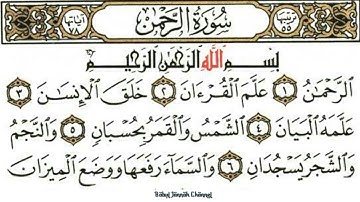 ترتيبها ٥٥ سُورَةُ الرَّحْمٰن آياتها ٧٨
بِسْمِ اللَّهِ الرَّحْمَٰنِ الرَّحِيمِ
الرَّحْمَـٰنُ ١ عَلَّمَ الْقُرْءَانَ ٢ خَلَقَ الْإِنسَـٰنَ ٣
عَلَّمَهُ الْبَيَانَ ٤ الشَّمْسُ وَالْقَمَرُ بِحُسْبَانٍ ٥ وَالنَّجْمُ
وَالشَّجَرُ يَسْجُدَانِ ٦ وَالسَّمَآءَ رَفَعَهَا وَوَضَعَ الْمِيزَانَ
Babul Jannah Channel